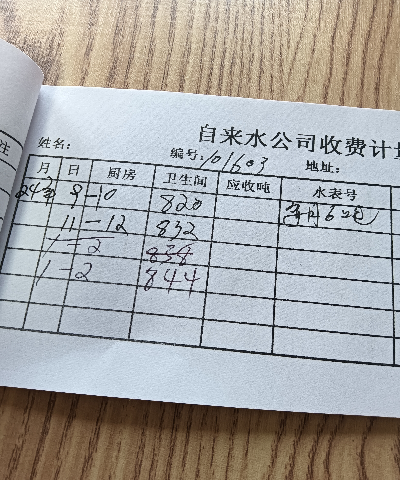 自来水公司收费计
姓名： 编号：101603 地址：
注
月 日 厨房 卫生间 应收吨 水表号
24年 9-10 820
11-12 832
1-2 838
1-2 844